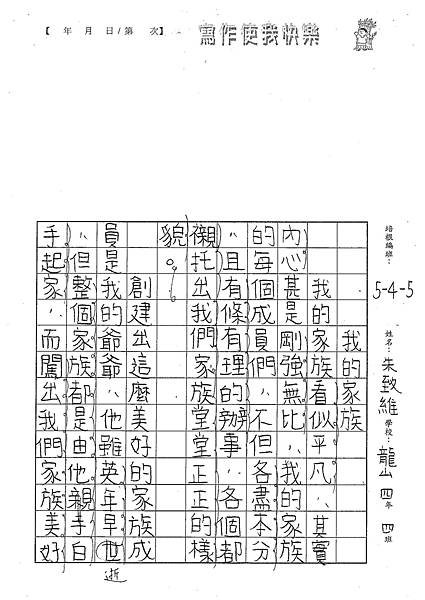 【 年 月 日/第 次】
寫作使我快樂
培根編班：5-4-5
姓名：朱致維 學校：龍山 四年 四班
我的家族
我的家族看似平凡，其實
內心甚是剛強無比，我的家族
的每個成員們，不但各盡本分
，且有條有理的辦事，各個都
襯托出我們家族堂堂正正的樣
貌。
創建出這麼美好的家族成
員是我的爺爺，他雖英年早世
逝
，但整個家族都是由他親手白
手起家，而闖出我們家族美好